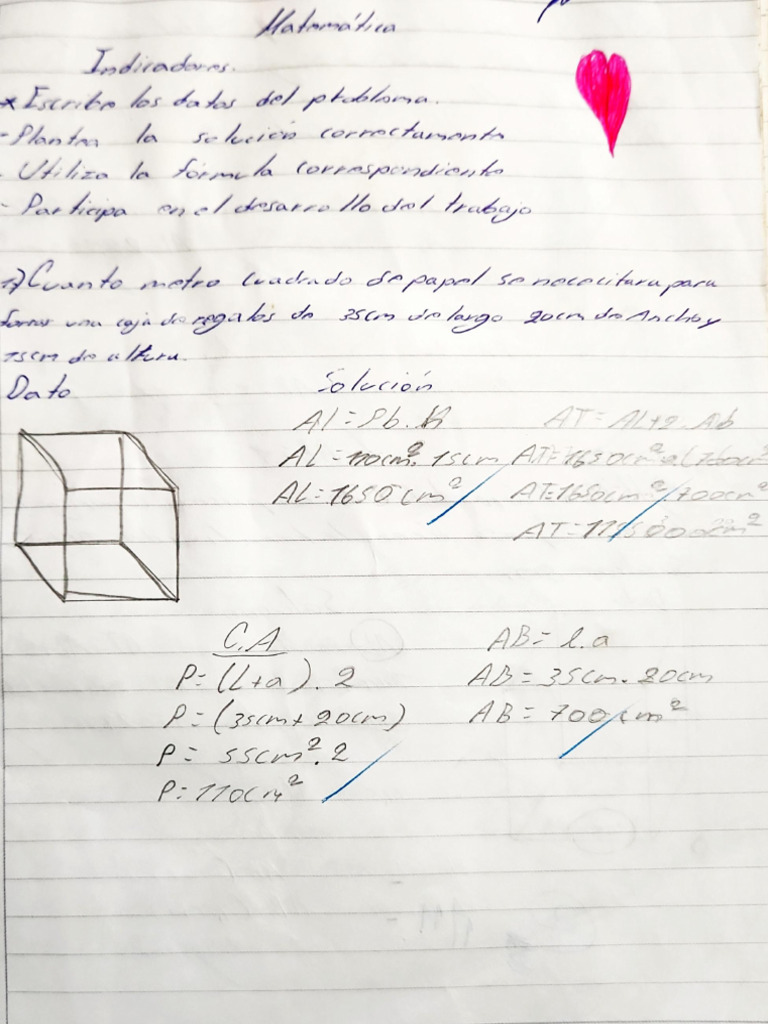 Matemática
Indicadores.
* Escribe los datos del problema.
- Plantea la solución correctamente
- Utiliza la fórmula correspondiente
- Participa en el desarrollo del trabajo
1) Cuanto metro cuadrado de papel se nececitara para
forrar una caja de regalos de 35cm de largo 20cm de Ancho y
15cm de altura.
Dato
Solución
Al = Pb . h
AL = 110cm² . 15cm
AL = 1650 cm²
AT = AL + 2 . Ab
AT = 1650cm²
AT = 1650cm² 700cm²
C.A
P = (L + a) . 2
P = (35cm + 20cm)
P = 55cm² . 2
P = 110cm²
AB = l . a
AB = 35cm . 20cm
AB = 700 cm²